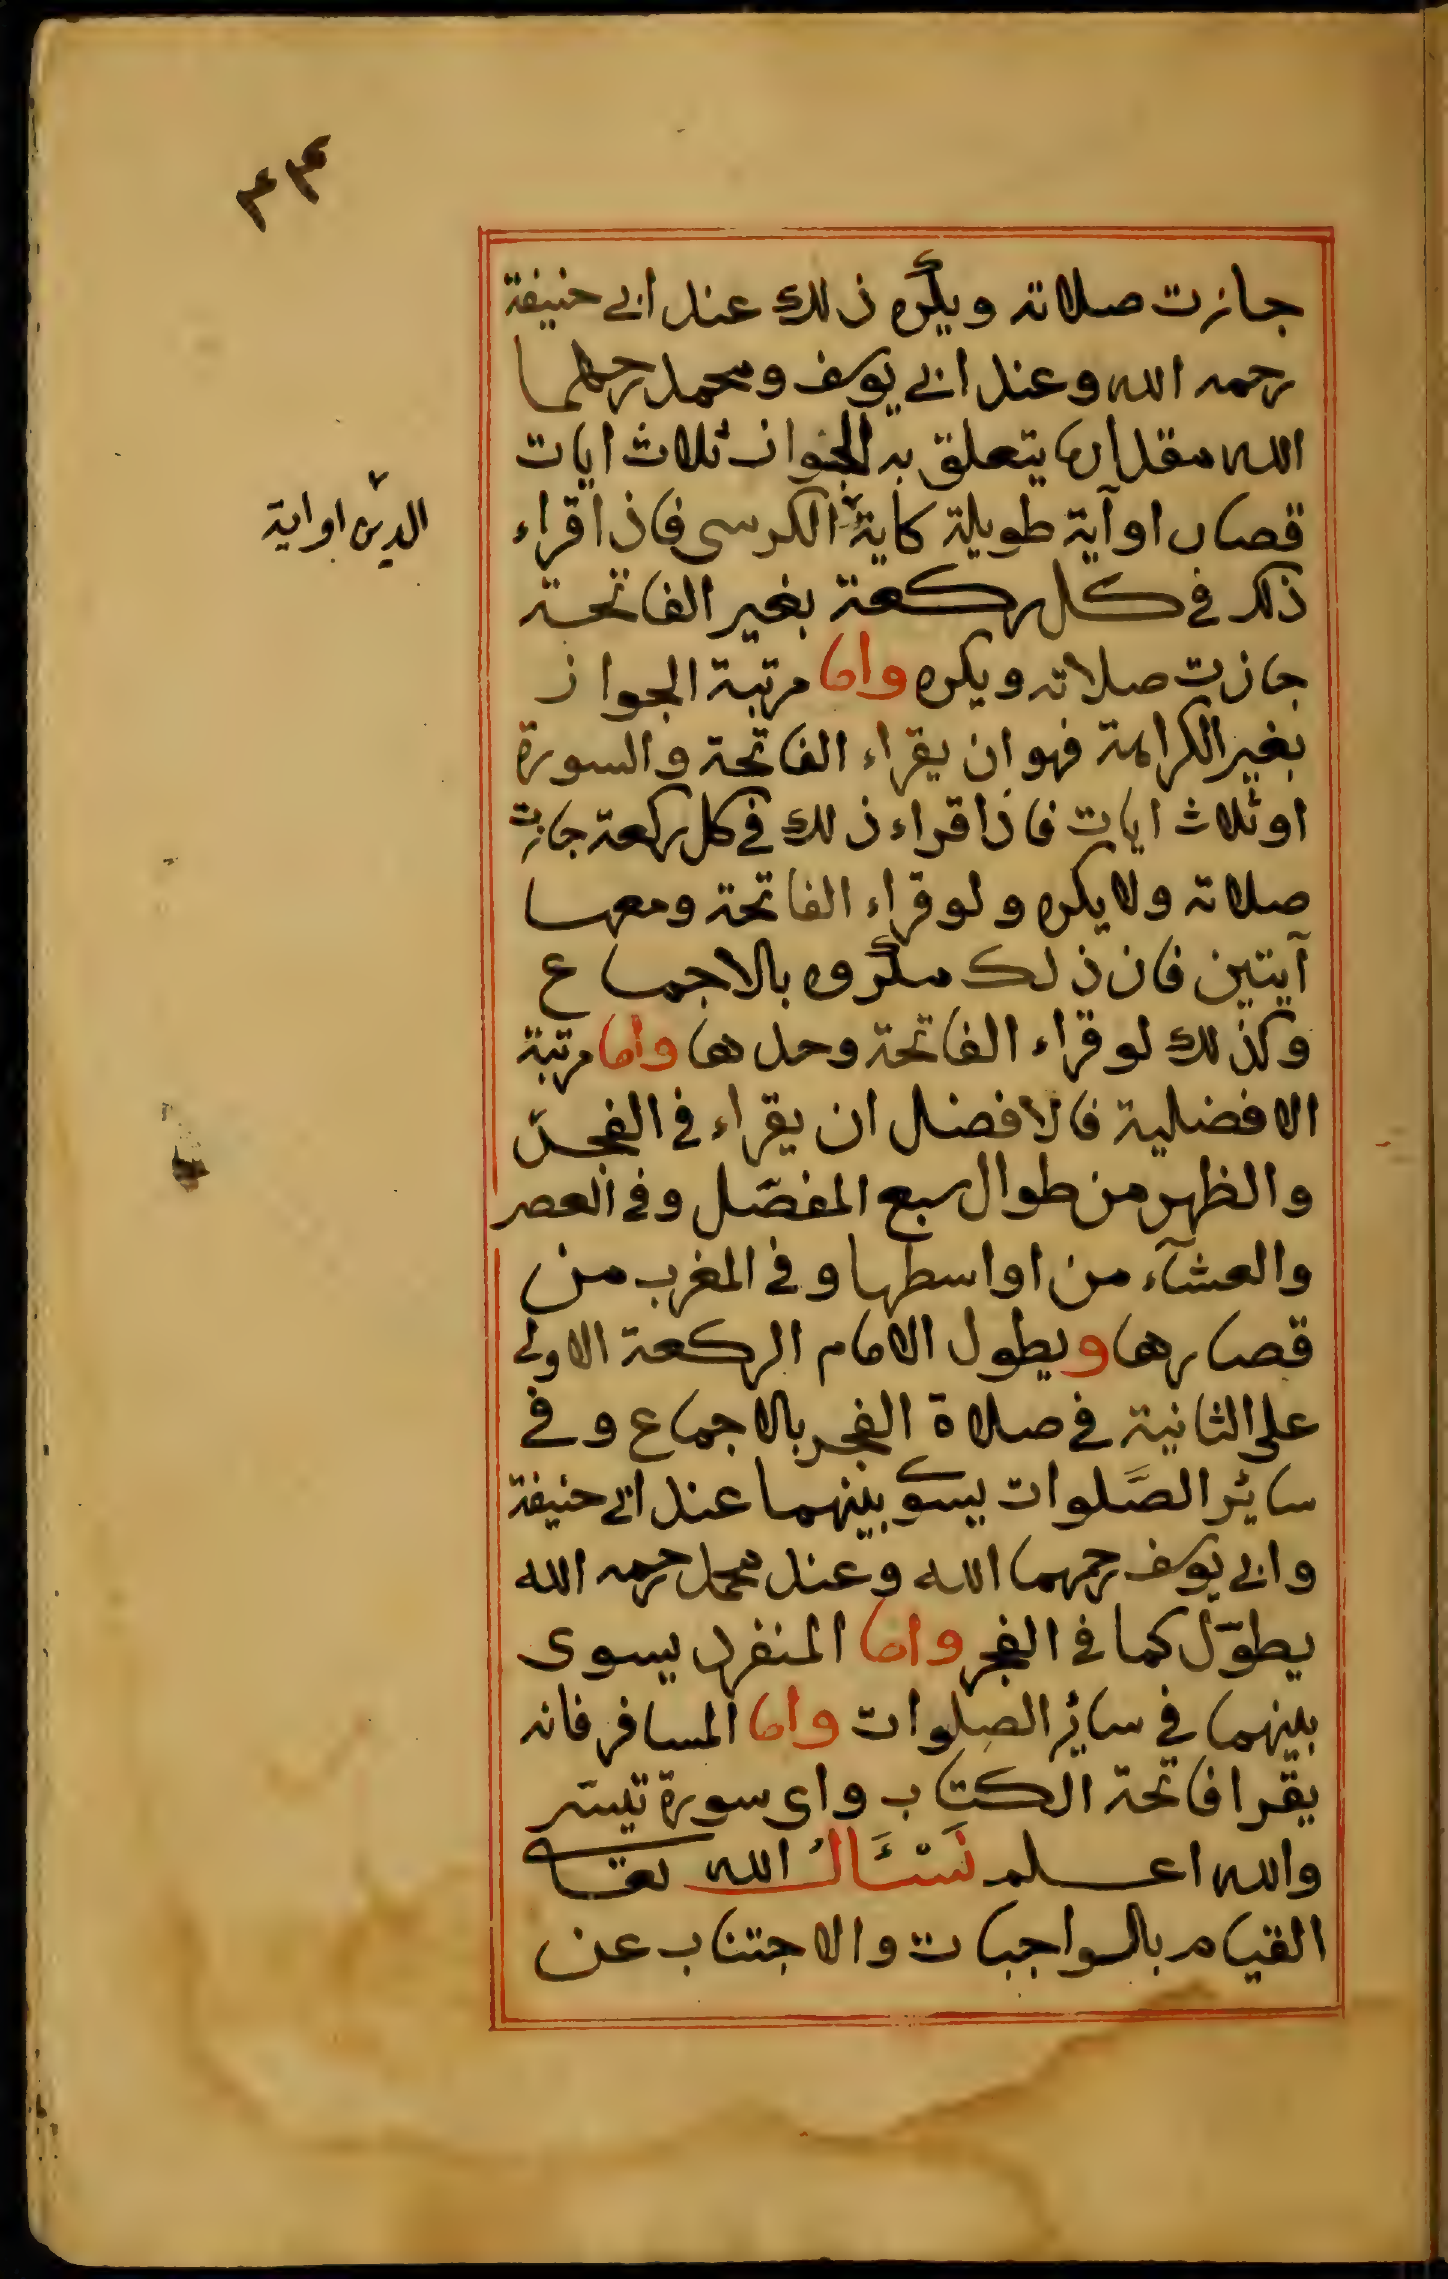 ٣٣
جازت صلاته ويكره ذلك عند ابي حنيفة
رحمه الله وعند ابي يوسف ومحمد رحمهما
الله مقدار ما يتعلق به الجواز ثلاث ايات
قصار او آية طويلة كآية الكرسي فاذا قراء
الدين او اية
ذلك في كل ركعة بغير الفاتحة
جازت صلاته ويكره واما مرتبة الجواز
بغير الكراهة فهو ان يقراء الفاتحة والسورة
او ثلاث ايات فاذا قراء ذلك في كل ركعة جازت
صلاته ولا يكره ولو قراء الفاتحة ومعها
آيتين فان ذلك مكروه بالاجماع
وكذلك لو قراء الفاتحة وحدها واما مرتبة
الافضلية فالافضل ان يقراء في الفجر
والظهر من طوال سبع المفصّل وفي العصر
والعشآء من اواسطها وفي المغرب من
قصارها ويطول الامام الركعة الاولى
على الثانية في صلاة الفجر بالاجماع وفي
سائر الصَّلوات يسوى بينهما عند ابي حنيفة
وابي يوسف رحمهما الله وعند محمد رحمه الله
يطوّل كما في الفجر واما المنفرد يسوى
بينهما في سائر الصلوات واما المسافر فانه
يقرا فاتحة الكتاب واى سورة تيسّر
والله اعلم نَسْئَالُ الله تعالى
القيام بالواجبات والاجتناب عن